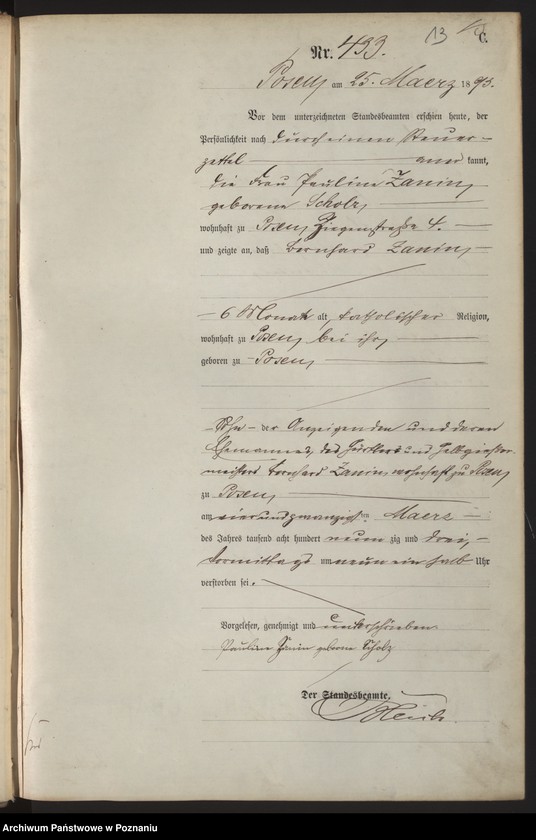 13
C.
Nr. 433.
Posen, am 25. Maerz 1893.
Vor dem unterzeichneten Standesbeamten erschien heute, der
Persönlichkeit nach durch einen Steuer-
zettel aner kannt,
die Frau Pauline Zanin,
geborene Scholz,
wohnhaft zu Posen, Ziegenstraße 4.
und zeigte an, daß Bernhard Zanin,
6 Monat alt, katholischer Religion,
wohnhaft zu Posen, bei ihr,
geboren zu Posen,
Sohn der Anzeigenden und deren
Ehemannes, des Gürtlers und Gelbgießer-
meisters Bernhard Zanin, wohnhaft zu Posen,
zu Posen,
am vierundzwanzigsten Maerz
des Jahres tausend acht hundert neun zig und drei,
Vormittags um neun ein halb Uhr
verstorben sei.
Vorgelesen, genehmigt und unterschrieben
Pauline Zanin geborene Scholz
Der Standesbeamte.
Archiwum Państwowe w Poznaniu